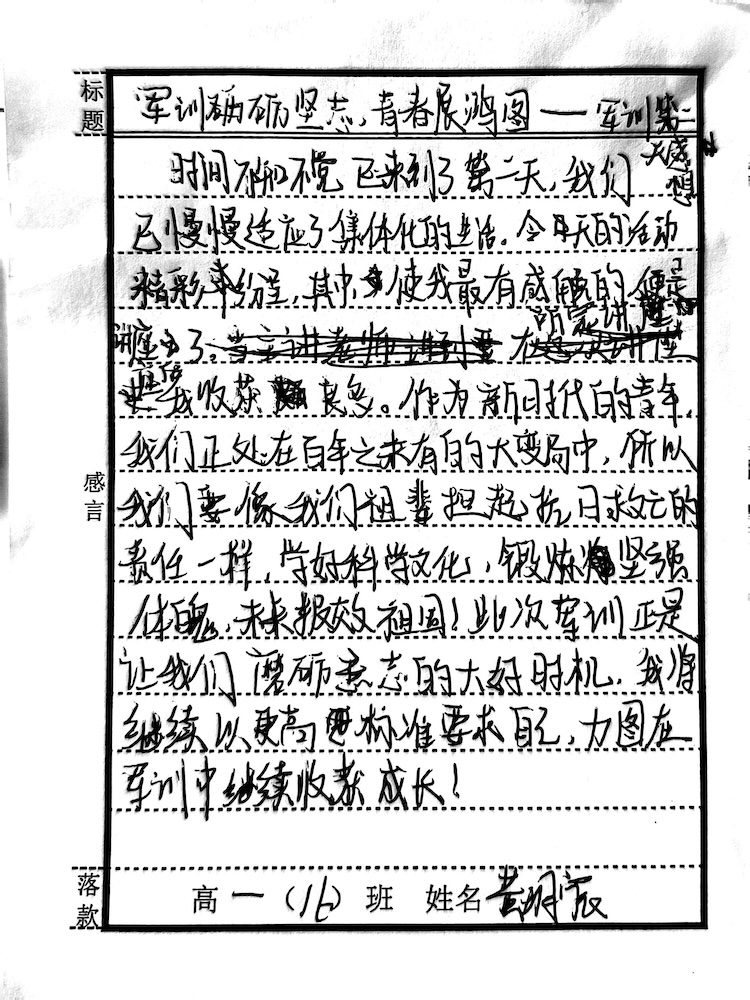 标题
军训砺砺坚志,青春展鸿图——军训第二天感想
时间不知不觉已来到了第二天,我们
已慢慢适应了集体化的生活。今天的活动
精彩纷呈,其中使我最有感触的便是
国家讲座
讲座了。在
座使我收获良多。作为新时代的青年,
我们正处在百年之未有的大变局中,所以
我们要像我们祖辈担起抗日救亡的
感言
责任一样,学好科学文化,锻炼坚强
体魄,未来报效祖国!此次军训正是
让我们磨砺意志的大好时机,我将
继续以更高的标准要求自己,力图在
军训中继续收获成长!
落款
高一(16)班 姓名 黄